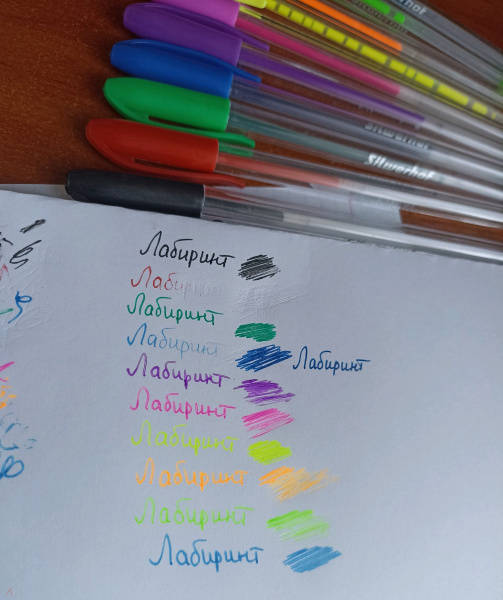 Silwerhof
Лабиринт
Лабиринт
Лабиринт
Лабиринт
Лабиринт
Лабиринт
Лабиринт
Лабиринт
Лабиринт
Лабиринт
Лабиринт